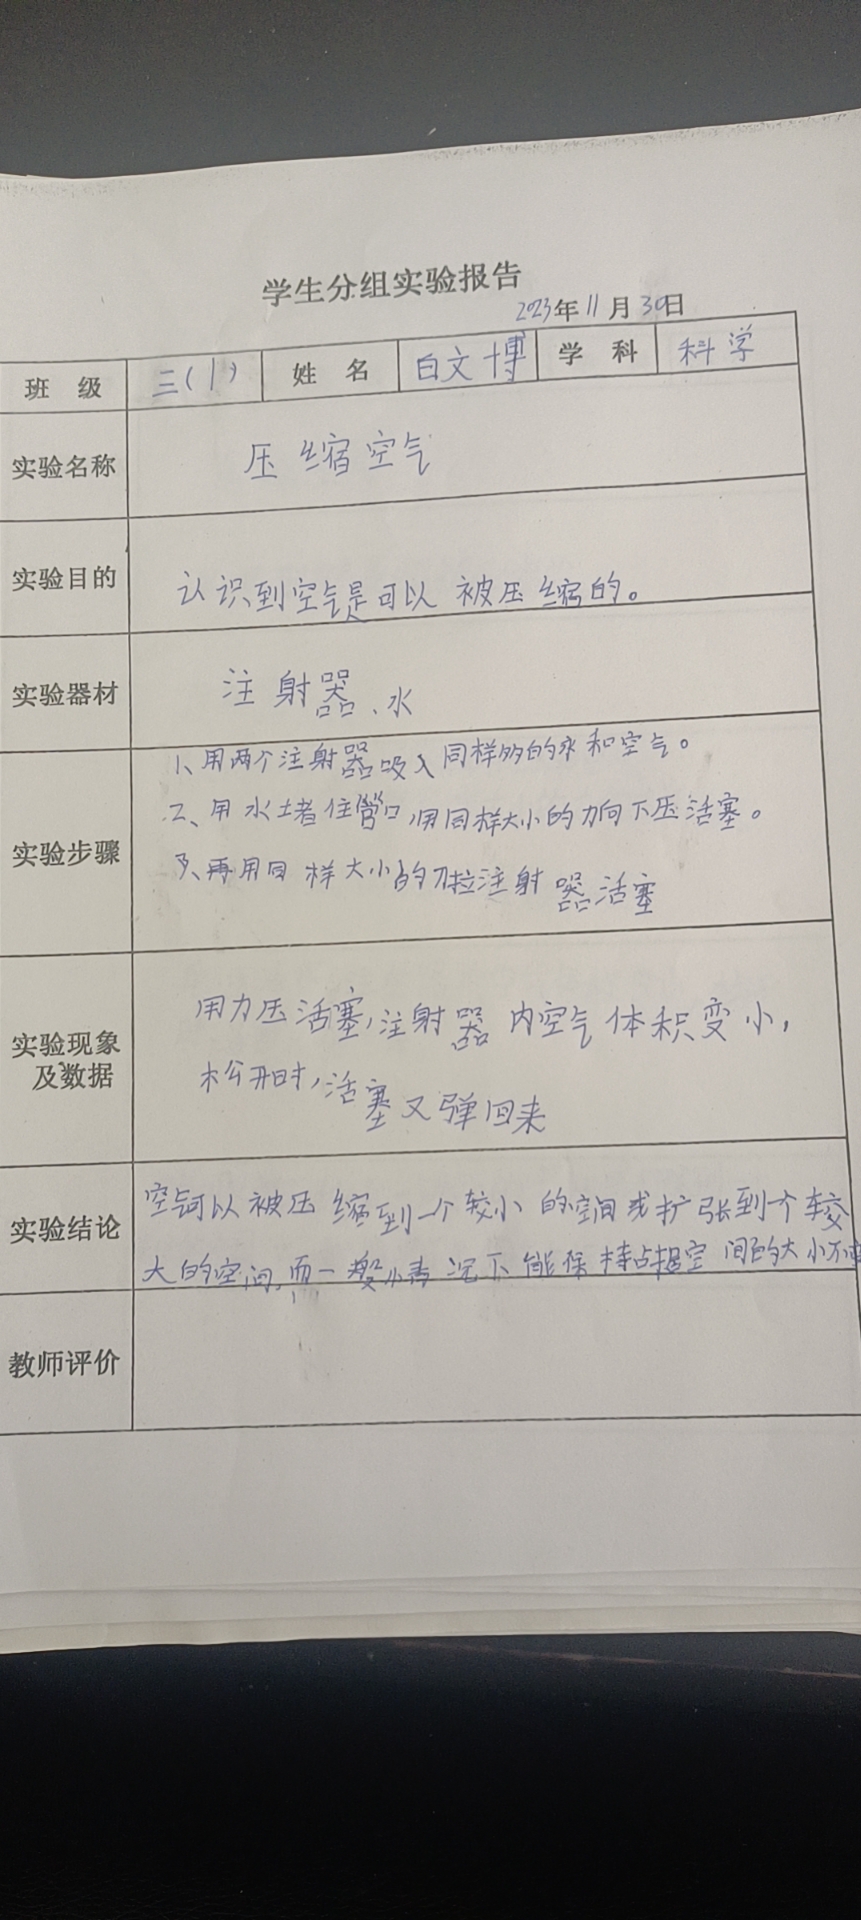 学生分组实验报告
2023年11月30日
班 级 三(1) 姓 名 白文博 学 科 科学
实验名称 压缩空气
实验目的 认识到空气是可以被压缩的。
实验器材 注射器、水
实验步骤
1、用两个注射器吸入同样多的水和空气。
2、用水堵住管口,用同样大小的力向下压活塞。
3、再用同样大小的力拉注射器活塞
实验现象
及数据
用力压活塞,注射器内空气体积变小,
松开时,活塞又弹回来
实验结论
空气可以被压缩到一个较小的空间或扩张到一个较
大的空间,而一般情况下能保持占据空间的大小不变
教师评价